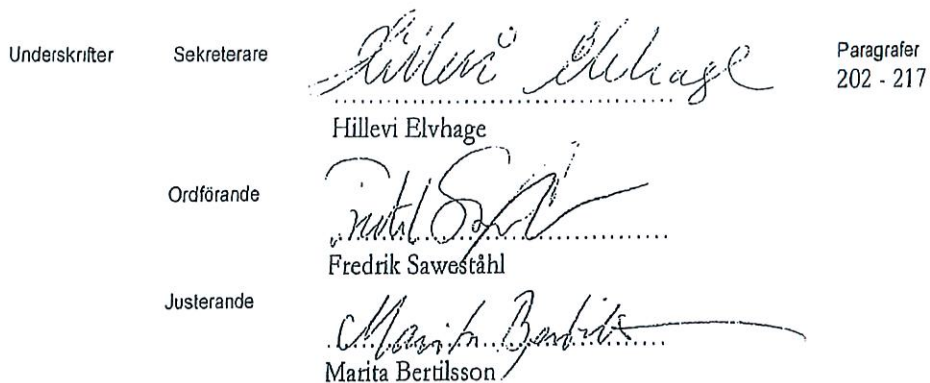 Underskrifter Sekreterare Hillevi Elvhage Paragrafer
202 - 217
Hillevi Elvhage
Ordförande
Fredrik Saweståhl
Justerande Marita Bertils
Marita Bertilsson